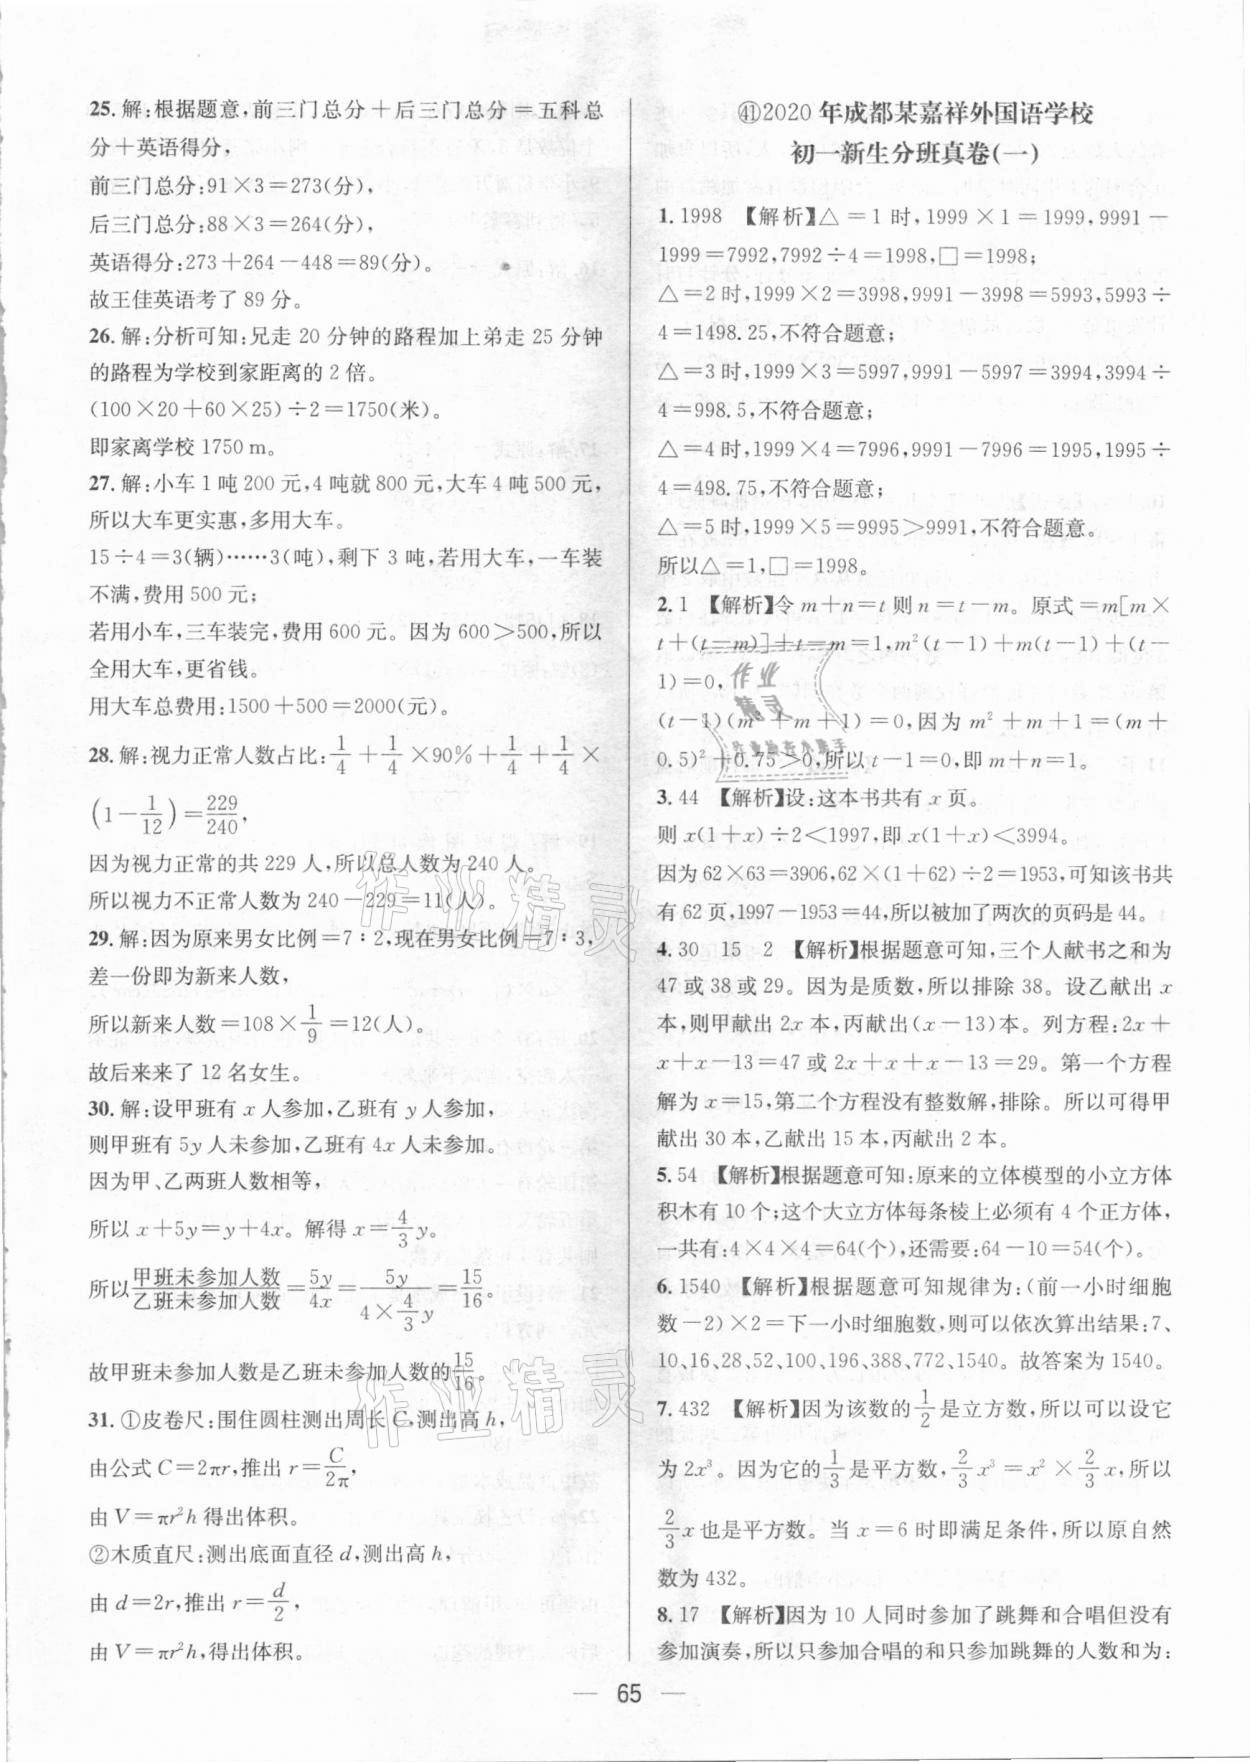 25. 解:根据题意,前三门总分+后三门总分=五科总
分+英语得分,
前三门总分:91×3=273(分),
后三门总分:88×3=264(分),
英语得分:273+264-448=89(分)。
故王佳英语考了 89 分。
26. 解:分析可知:兄走 20 分钟的路程加上弟走 25 分钟
的路程为学校到家距离的 2 倍。
(100×20+60×25)÷2=1750(米)。
即家离学校 1750 m。
27. 解:小车 1 吨 200 元,4 吨就 800 元,大车 4 吨 500 元,
所以大车更实惠,多用大车。
15÷4=3(辆)……3(吨),剩下 3 吨,若用大车,一车装
不满,费用 500 元;
若用小车,三车装完,费用 600 元。因为 600>500,所以
全用大车,更省钱。
用大车总费用:1500+500=2000(元)。
28. 解:视力正常人数占比:1/4+1/4×90%+1/4+1/4×
(1-1/12)=229/240,
因为视力正常的共 229 人,所以总人数为 240 人。
所以视力不正常人数为 240-229=11(人)。
29. 解:因为原来男女比例=7∶2,现在男女比例=7∶3,
差一份即为新来人数,
所以新来人数=108×1/9=12(人)。
故后来来了 12 名女生。
30. 解:设甲班有 x 人参加,乙班有 y 人参加,
则甲班有 5y 人未参加,乙班有 4x 人未参加。
因为甲、乙两班人数相等,
所以 x+5y=y+4x。解得 x=4/3y。
所以甲班未参加人数/乙班未参加人数=5y/4x=5y/(4×4/3y)=15/16。
故甲班未参加人数是乙班未参加人数的15/16。
31. ①皮卷尺:围住圆柱测出周长 C,测出高 h,
由公式 C=2πr,推出 r=C/2π,
由 V=πr²h 得出体积。
②木质直尺:测出底面直径 d,测出高 h,
由 d=2r,推出 r=d/2,
由 V=πr²h 得出体积。
㊶2020 年成都某嘉祥外国语学校
初一新生分班真卷(一)
1. 1998 【解析】△=1 时,1999×1=1999,9991-
1999=7992,7992÷4=1998,□=1998;
△=2 时,1999×2=3998,9991-3998=5993,5993÷
4=1498.25,不符合题意;
△=3 时,1999×3=5997,9991-5997=3994,3994÷
4=998.5,不符合题意;
△=4 时,1999×4=7996,9991-7996=1995,1995÷
4=498.75,不符合题意;
△=5 时,1999×5=9995>9991,不符合题意。
所以△=1,□=1998。
2. 1 【解析】令 m+n=t 则 n=t-m。原式=m[m×
t+(t-m)]+t-m=1,m²(t-1)+m(t-1)+(t-
1)=0,
(t-1)(m²+m+1)=0,因为 m²+m+1=(m+
0.5)²+0.75>0,所以 t-1=0,即 m+n=1。
3. 44 【解析】设:这本书共有 x 页。
则 x(1+x)÷2<1997,即 x(1+x)<3994。
因为 62×63=3906,62×(1+62)÷2=1953,可知该书共
有 62 页,1997-1953=44,所以被加了两次的页码是 44。
4. 30 15 2 【解析】根据题意可知,三个人献书之和为
47 或 38 或 29。因为是质数,所以排除 38。设乙献出 x
本,则甲献出 2x 本,丙献出(x-13)本。列方程:2x+
x+x-13=47 或 2x+x+x-13=29。第一个方程
解为 x=15,第二个方程没有整数解,排除。所以可得甲
献出 30 本,乙献出 15 本,丙献出 2 本。
5. 54 【解析】根据题意可知:原来的立体模型的小立方体
积木有 10 个;这个大立方体每条棱上必须有 4 个正方体,
一共有:4×4×4=64(个),还需要:64-10=54(个)。
6. 1540 【解析】根据题意可知规律为:(前一小时细胞
数-2)×2=下一小时细胞数,则可以依次算出结果:7、
10、16、28、52、100、196、388、772、1540。故答案为 1540。
7. 432 【解析】因为该数的1/2是立方数,所以可以设它
为 2x³。因为它的1/3是平方数,2/3x³=x²×2/3x,所以
2/3x 也是平方数。当 x=6 时即满足条件,所以原自然
数为 432。
8. 17 【解析】因为 10 人同时参加了跳舞和合唱但没有
参加演奏,所以只参加合唱的和只参加跳舞的人数和为:
作业
精灵
作业精灵
作业精灵
— 65 —